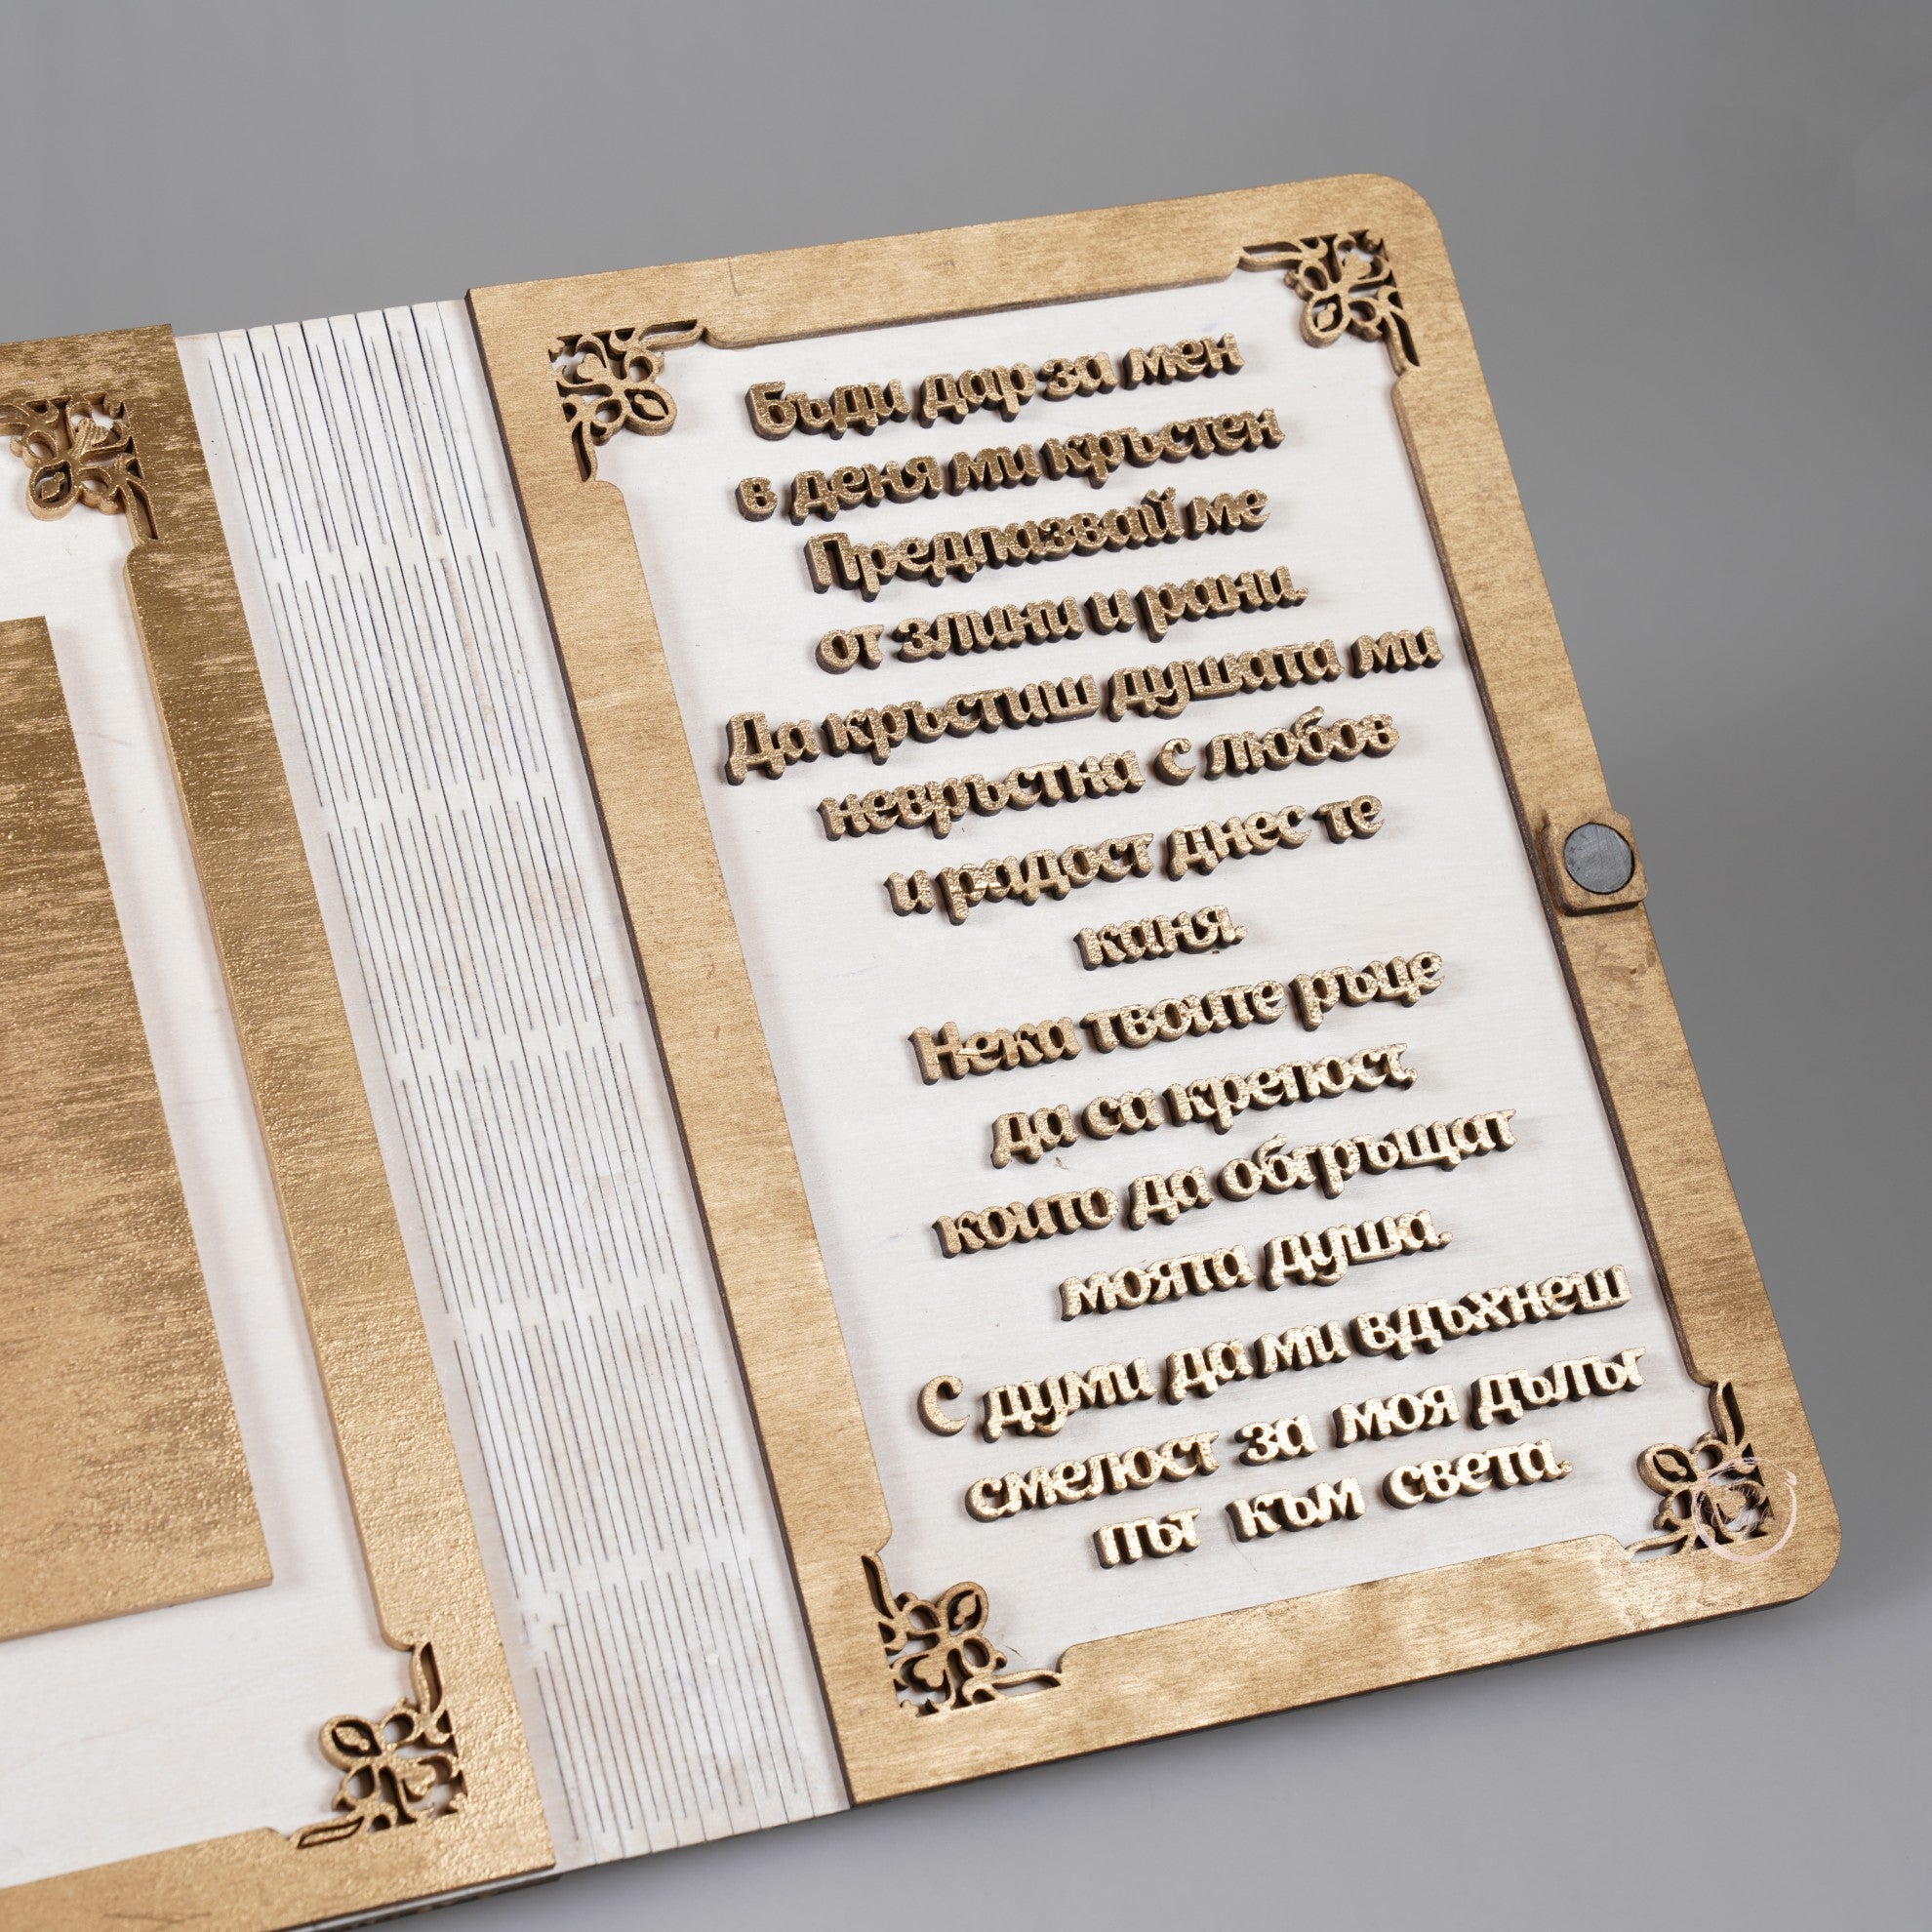 Бъди дар за мен
в деня ми кръстен
Предпазвай ме
от злини и рани.
Да кръстиш душата ми
невръстна с любов
и радост днес те
каня.
Нека твоите ръце
да са крепост,
които да обгръщат
моята душа.
С думи да ми вдъхнеш
смелост за моя дълъг
път към света.